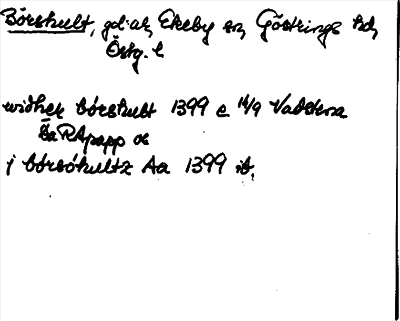 Börskult, gd: ar, Ekeby sn, Göstrings hd,
Östg. l
widher börskult 1399 e 14/9 Vadstena
SaRApapp or
j börsökultz Aa 1399 ib.